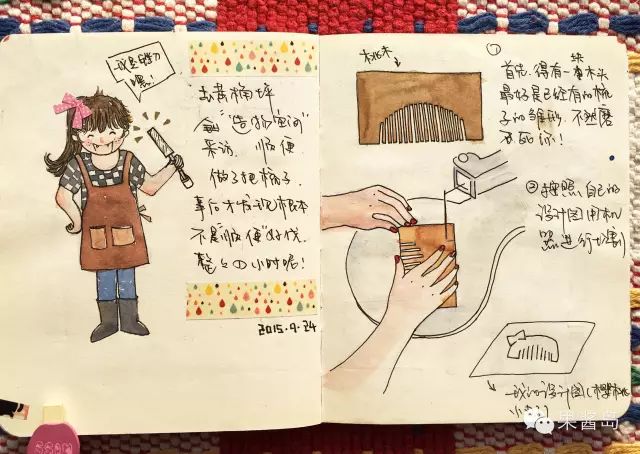 我是
嘿！
去黄桷坪
"造物空间"
采访，顺便
做了把梳子，
事后才发现根本
不是"顺便"好伐，
整整 小时呢！
2015.9.24
桃木
①
首先，得有一块木头
最好是已经有的梳
子的雏形，不然磨
死你！
②按照自己的
设计图用机
器进行切割
我的设计图（樱桃
小
果酱岛